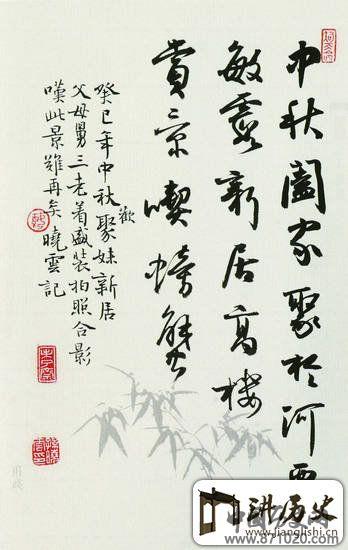 中秋闔家聚於河
敏霞新居高樓
賞景喫螃蟹
癸巳年中秋歡聚妹新居
父母舅三老着盛裝拍照合影
嘆此景難再矣 曉雲記
讲历史
www.jianglishi.cn
www.871020.com